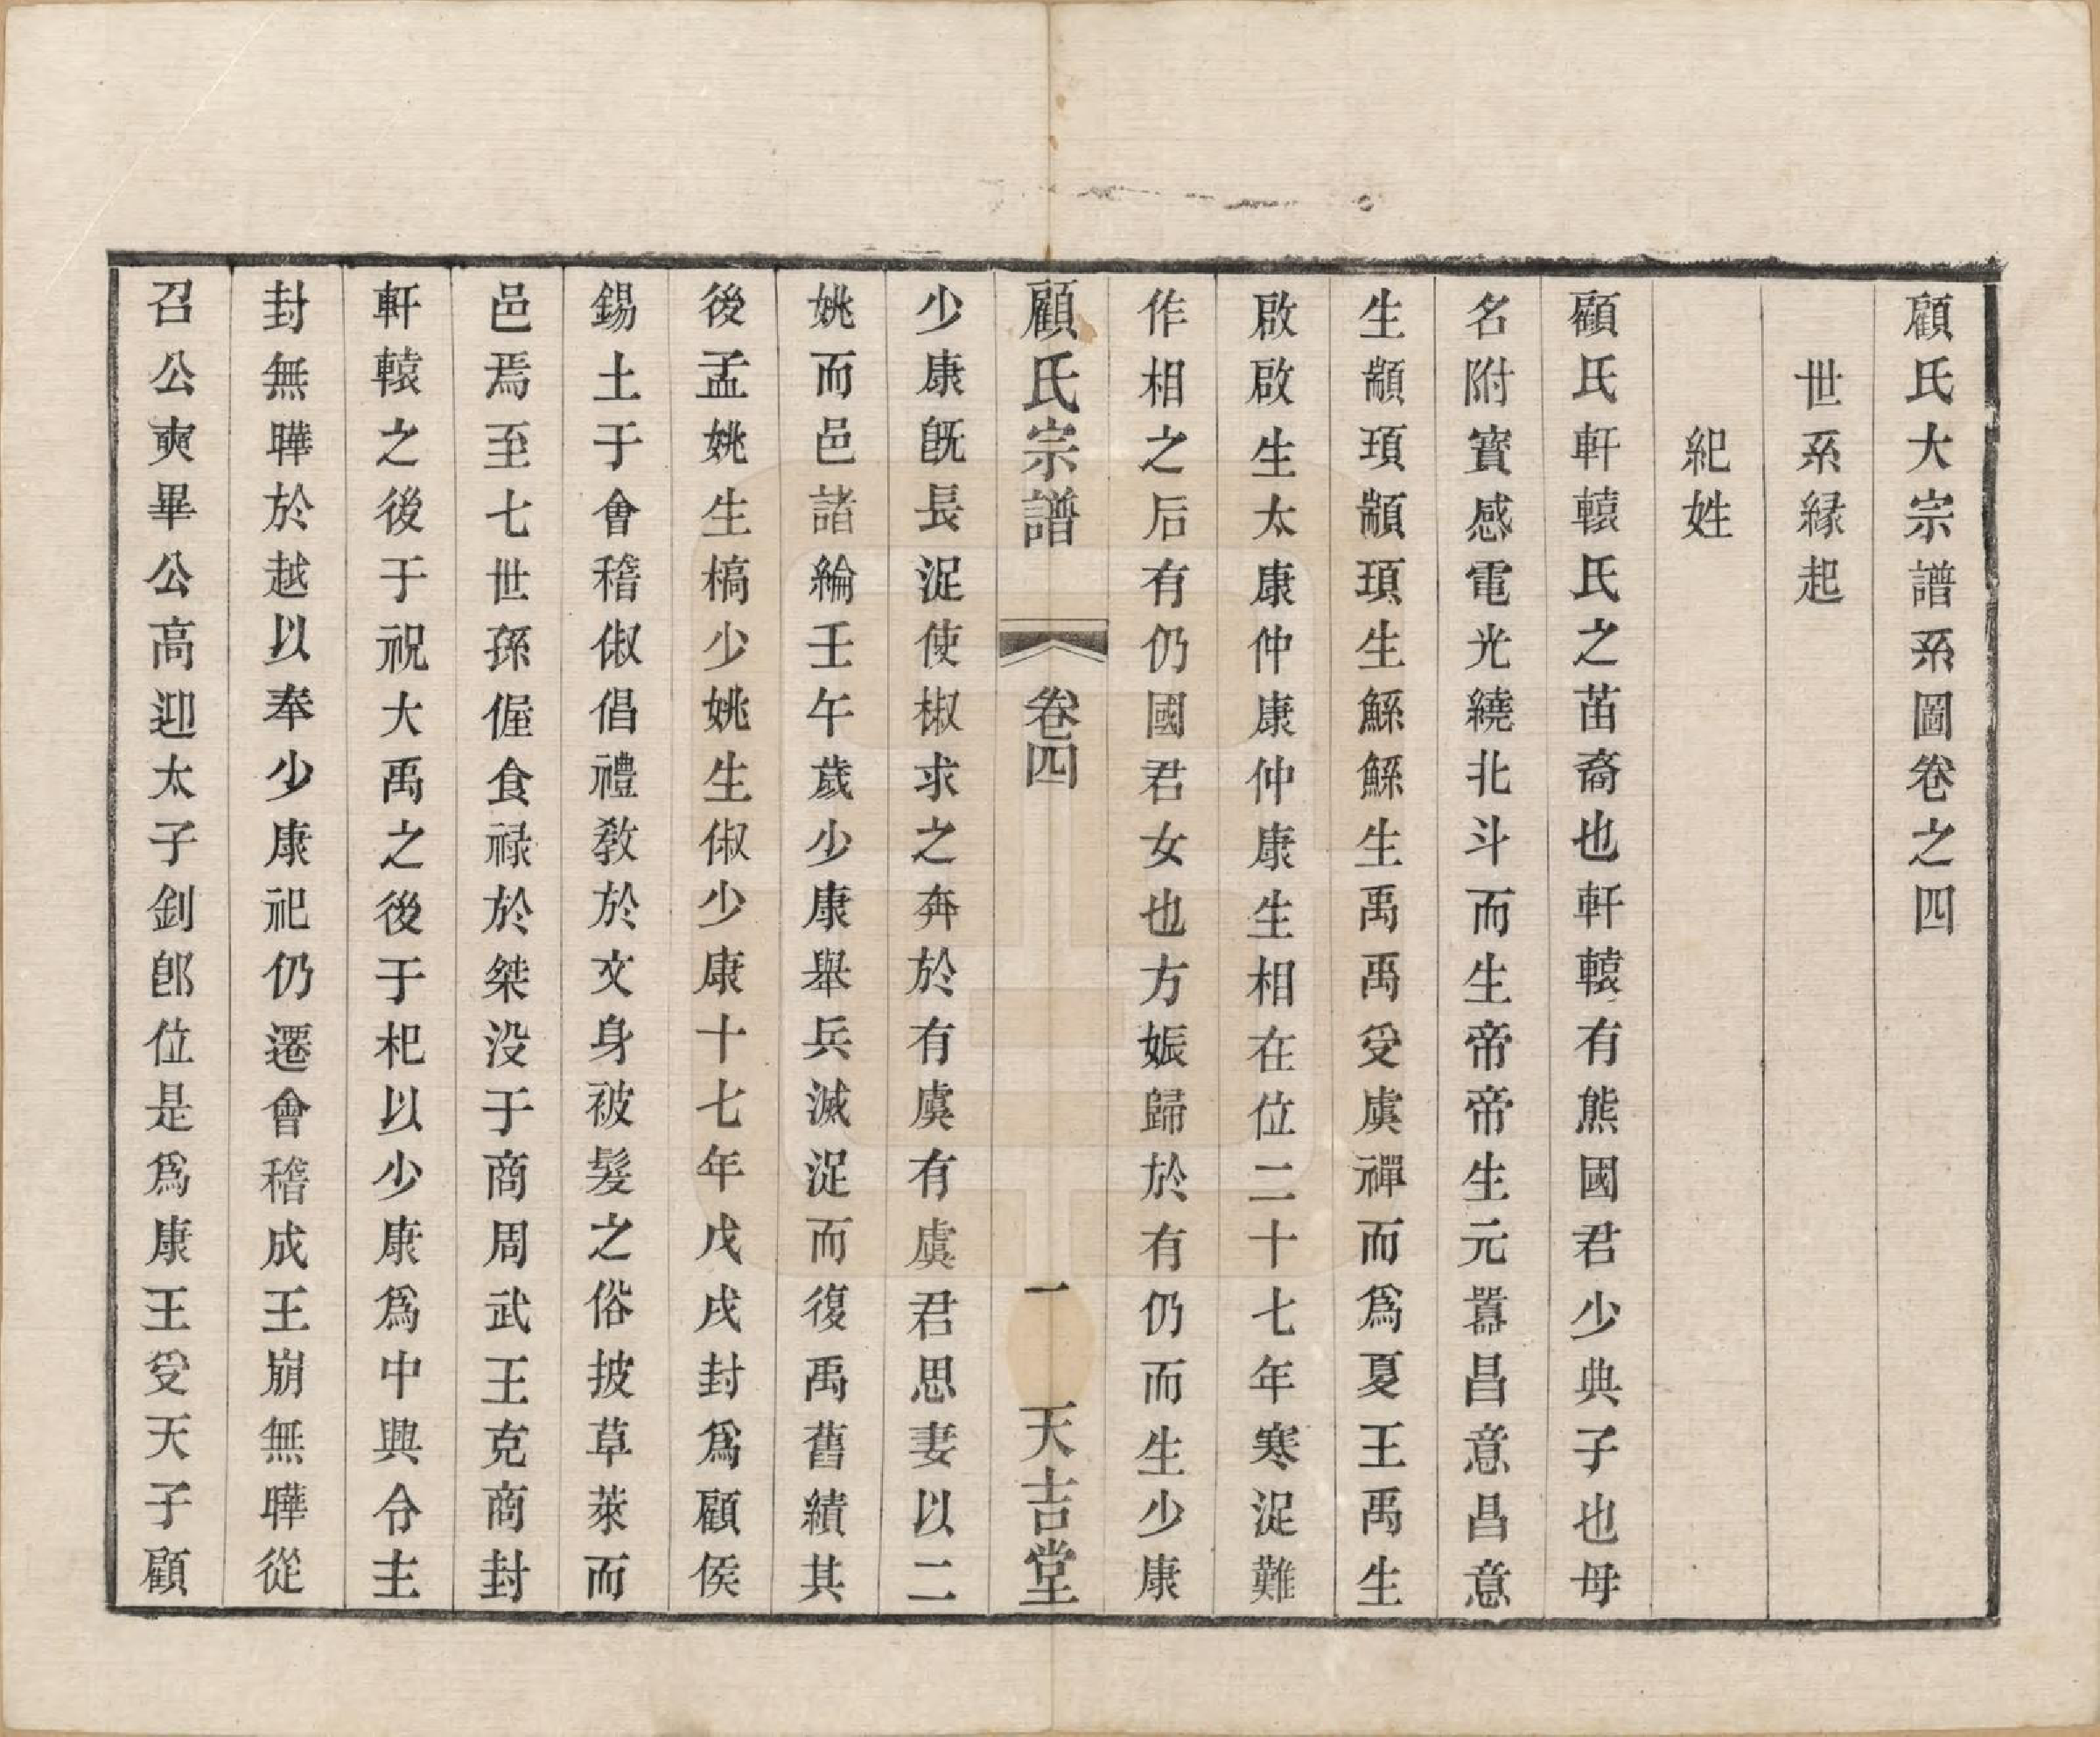 顧氏大宗譜系圖卷之四
世系緣起
紀姓
顧氏軒轅氏之苗裔也軒轅有熊國君少典子也母
名附寳感電光繞北斗而生帝帝生元囂昌意昌意
生顓頊顓頊生鯀鯀生禹禹受虞禪而爲夏王禹生
啟啟生太康仲康仲康生相在位二十七年寒浞難
作相之后有仍國君女也方娠歸於有仍而生少康
顧氏宗譜 卷四 一 天吉堂
少康旣長浞使椒求之奔於有虞有虞君思妻以二
姚而邑諸綸壬午歲少康舉兵滅浞而復禹舊績其
後孟姚生槁少姚生俶少康十七年戊戌封爲顧侯
錫土于會稽俶倡禮教於文身被髮之俗披草萊而
邑焉至七世孫偓食祿於桀没于商周武王克商封
軒轅之後于祝大禹之後于杞以少康爲中興令主
封無曄於越以奉少康祀仍遷會稽成王崩無曄從
召公奭畢公高迎太子釗卽位是爲康王受天子顧